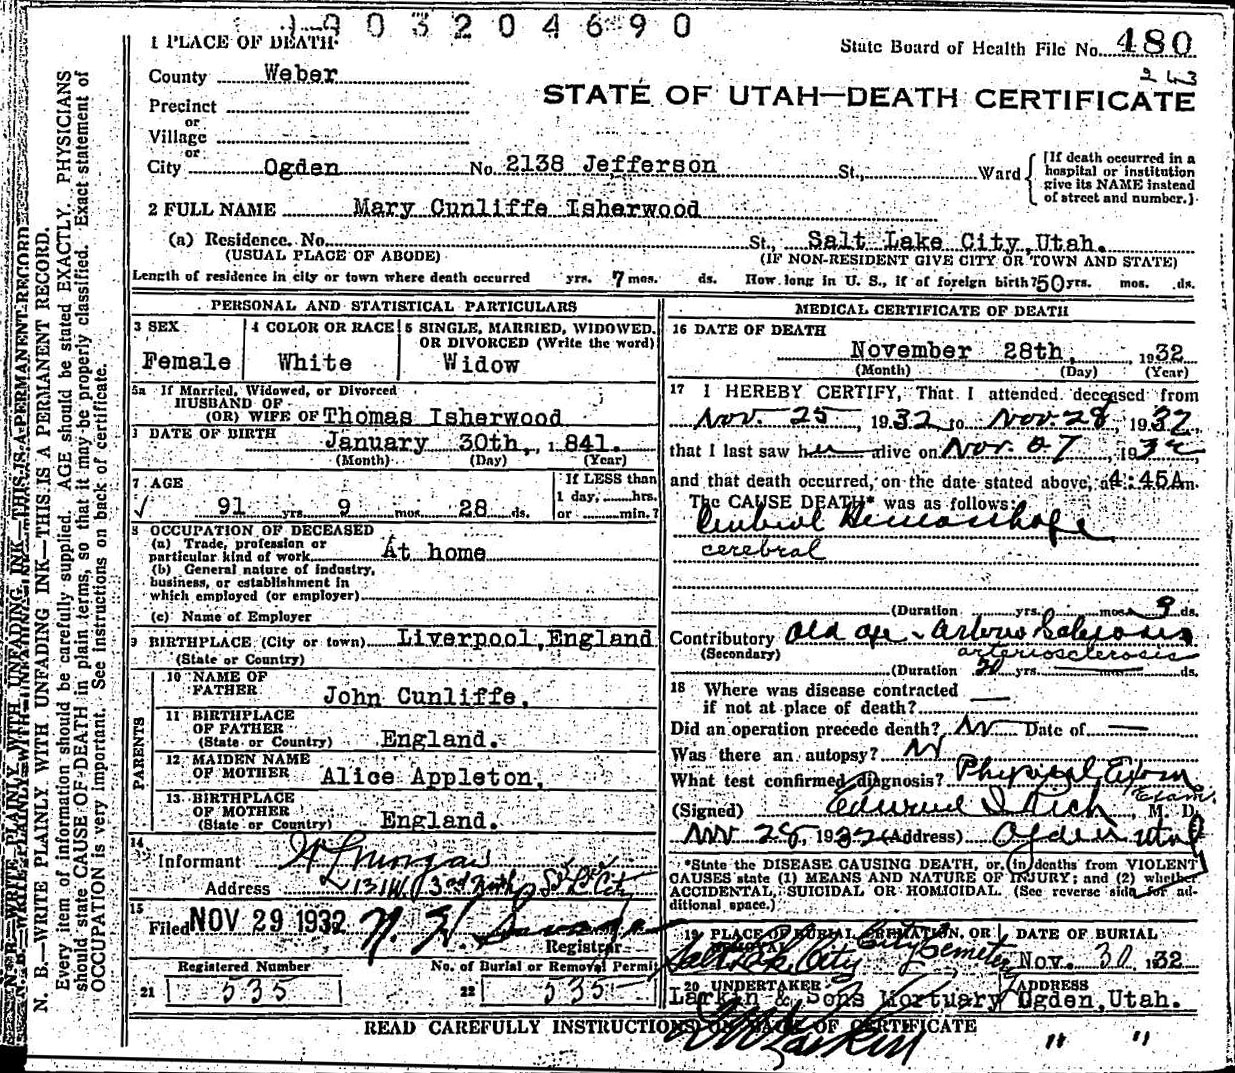 1903204690
1 PLACE OF DEATH
State Board of Health File No. 480
243
County Weber
STATE OF UTAH—DEATH CERTIFICATE
Precinct
or
Village
or
City Ogden No. 2138 Jefferson St., Ward
[If death occurred in a
hospital or institution
give its NAME instead
of street and number.]
2 FULL NAME Mary Cunliffe Isherwood
(a) Residence. No. St., Salt Lake City, Utah.
(USUAL PLACE OF ABODE) (IF NON-RESIDENT GIVE CITY OR TOWN AND STATE)
Length of residence in city or town where death occurred yrs. 7 mos. ds. How long in U. S., if of foreign birth? 50 yrs. mos. ds.
PERSONAL AND STATISTICAL PARTICULARS
3 SEX
Female
4 COLOR OR RACE
White
5 SINGLE, MARRIED, WIDOWED,
OR DIVORCED (Write the word)
Widow
5a If Married, Widowed, or Divorced
HUSBAND OF
(OR) WIFE OF Thomas Isherwood
DATE OF BIRTH January 30th, 1841.
(Month) (Day) (Year)
7 AGE
91 yrs. 9 mos. 28 ds.
If LESS than
1 day, hrs.
or min.?
8 OCCUPATION OF DECEASED
(a) Trade, profession or
particular kind of work At home
(b) General nature of industry,
business, or establishment in
which employed (or employer)
(c) Name of Employer
9 BIRTHPLACE (City or town) Liverpool, England
(State or Country)
PARENTS
10 NAME OF
FATHER John Cunliffe,
11 BIRTHPLACE
OF FATHER
(State or Country) England.
12 MAIDEN NAME
OF MOTHER Alice Appleton,
13 BIRTHPLACE
OF MOTHER
(State or Country) England.
14
Informant
Address
15
Filed NOV 29 1932
Registrar
Registered Number
21 535
No. of Burial or Removal Permit
22 535
MEDICAL CERTIFICATE OF DEATH
16 DATE OF DEATH
November 28th, 1932
(Month) (Day) (Year)
17 I HEREBY CERTIFY, That I attended deceased from
Nov. 25, 1932 to Nov. 28, 1932,
that I last saw her alive on Nov. 27, 1932
and that death occurred, on the date stated above, at 4:45A m.
The CAUSE DEATH* was as follows:
Cerebral Hemorrhage
cerebral
(Duration yrs. mos. 9 ds.
Contributory Old age - Arterio Sclerosis
(Secondary) arteriosclerosis
(Duration 20 yrs. mos. ds.
18 Where was disease contracted
if not at place of death?
Did an operation precede death? No Date of
Was there an autopsy? No
What test confirmed diagnosis? Physical Exam
Exam.
(Signed) Edward I Rich, M. D.
Nov 28, 1932 (Address) Ogden Utah
*State the DISEASE CAUSING DEATH, or, (in) deaths from VIOLENT
CAUSES state (1) MEANS AND NATURE OF INJURY; and (2) whether
ACCIDENTAL, SUICIDAL OR HOMICIDAL. (See reverse side for ad-
ditional space.)
19 PLACE OF BURIAL, CREMATION, OR
REMOVAL
Salt Lake City City Cemetery
DATE OF BURIAL
Nov. 30 1932
20 UNDERTAKER
Larkin & Sons Mortuary
ADDRESS
Ogden, Utah.
READ CAREFULLY INSTRUCTIONS ON BACK OF CERTIFICATE
" "
N. B.—WRITE PLAINLY WITH UNFADING INK—THIS IS A PERMANENT RECORD.
Every item of information should be carefully supplied. AGE should be stated EXACTLY. PHYSICIANS
should state CAUSE OF DEATH in plain terms, so that it may be properly classified. Exact statement of
OCCUPATION is very important. See instructions on back of certificate.